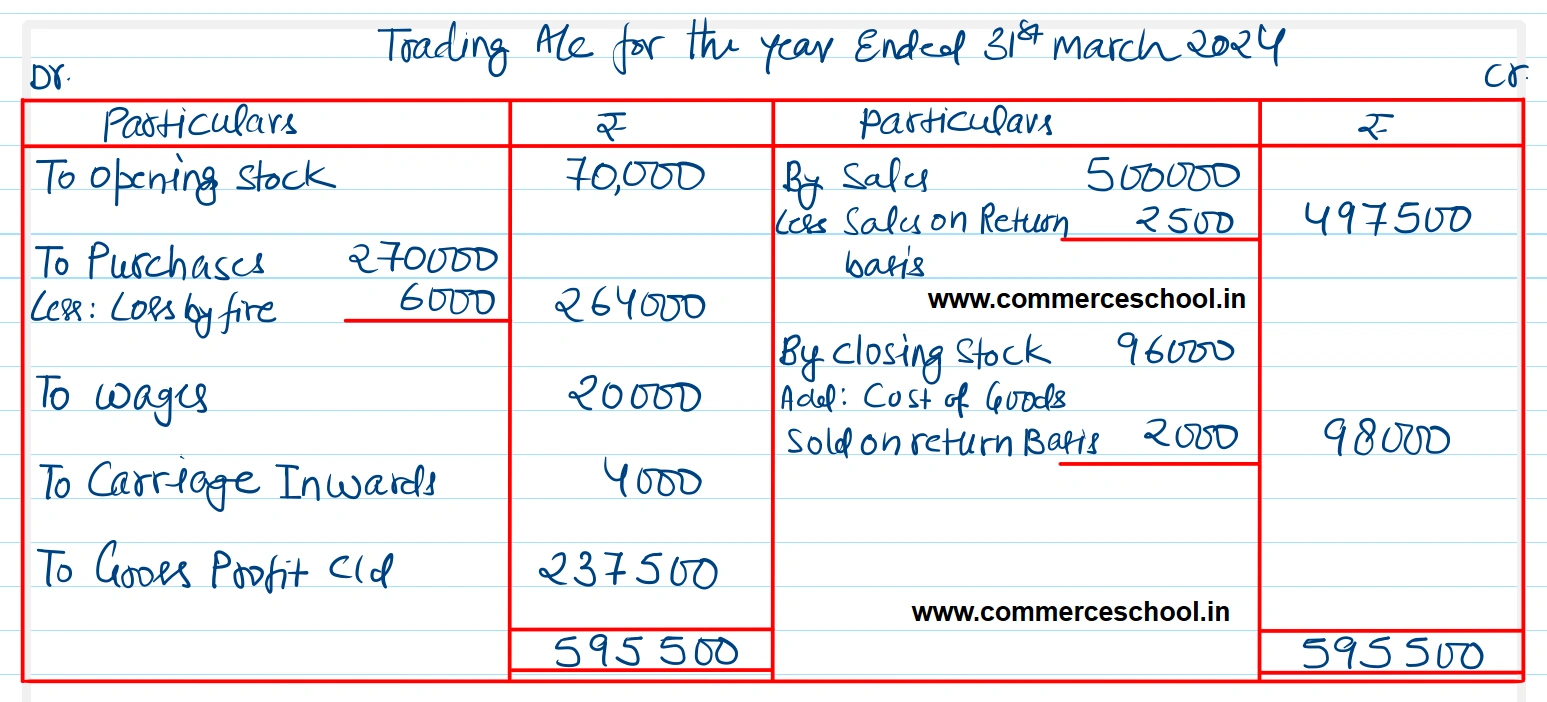 Trading A/c for the year Ended 31st March 2024
Dr. Cr.
Particulars ₹ Particulars ₹
To Opening Stock 70,000 By Sales 500000
Less Sales on Return 2500 497500
basis
To Purchases 270000
Less: Loss by fire 6000 264000
www.commerceschool.in
By Closing Stock 96000
To Wages 20000 Add: Cost of Goods
Sold on return Basis 2000 98000
To Carriage Inwards 4000
To Gross Profit c/d 237500
www.commerceschool.in
595500 595500